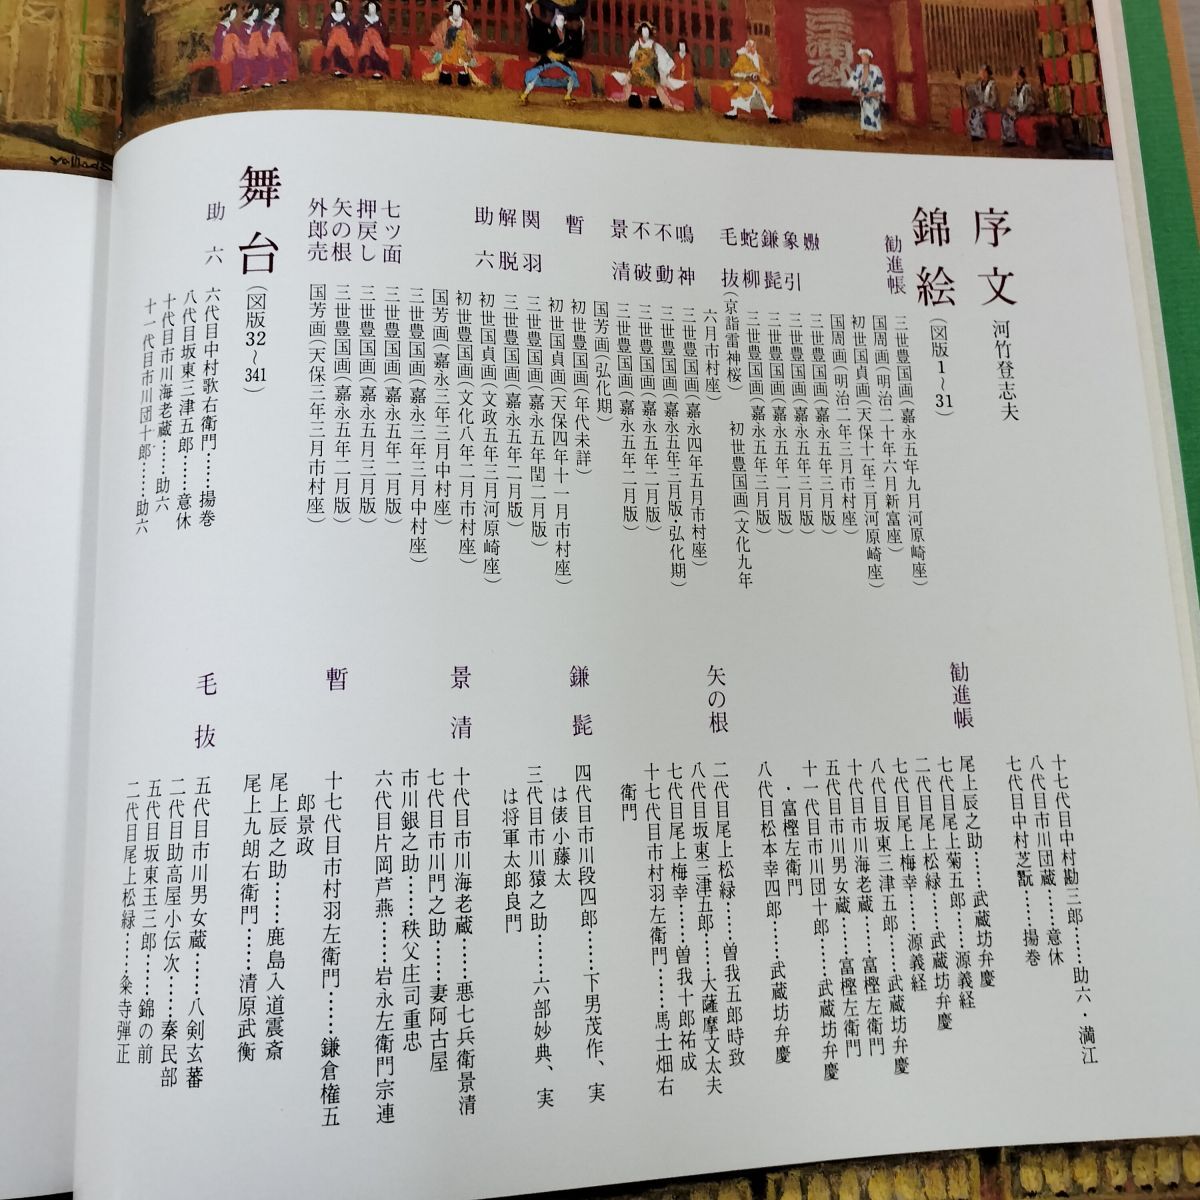 序文 河竹登志夫
錦絵(図版1〜31)
勧進帳 三世豊国画(嘉永五年九月河原崎座)
国周画(明治二十年六月新富座)
初世国貞画(天保十一年三月河原崎座)
国周画(明治二年三月市村座)
嫐 三世豊国画(嘉永五年三月版)
象引 三世豊国画(嘉永五年三月版)
鎌髭 三世豊国画(嘉永五年三月版)
蛇柳 三世豊国画(嘉永五年三月版)
毛抜(京詣雷神桜) 初世豊国画(文化九年
六月市村座)
鳴神 三世豊国画(嘉永四年五月市村座)
不動 三世豊国画(嘉永五年三月版・弘化期)
不破 三世豊国画(嘉永五年二月版)
景清 三世豊国画(嘉永五年二月版)
国芳画(弘化期)
暫 初世豊国画(年代未詳)
初世国貞画(天保四年十一月市村座)
関羽 三世豊国画(嘉永五年閏二月版)
解脱 三世豊国画(嘉永五年二月版)
助六 初世国貞画(文政五年三月河原崎座)
初世豊国画(文化八年二月市村座)
国芳画(嘉永三年三月中村座)
三世豊国画(嘉永三年三月中村座)
七ツ面 三世豊国画(嘉永五年二月版)
押戻し 三世豊国画(嘉永五月三月版)
矢の根 三世豊国画(嘉永五年二月版)
外郎売 国芳画(天保三年三月市村座)
舞台(図版32〜341)
助六 六代目中村歌右衛門……揚巻
八代目坂東三津五郎……意休
十代目市川海老蔵……助六
十一代目市川団十郎……助六
十七代目中村勘三郎……助六・満江
八代目市川団蔵……意休
七代目中村芝翫……揚巻
勧進帳 尾上辰之助……武蔵坊弁慶
七代目尾上菊五郎……源義経
二代目尾上松緑……武蔵坊弁慶
七代目尾上梅幸……源義経
八代目坂東三津五郎……武蔵坊弁慶
十代目市川海老蔵……富樫左衛門
五代目市川男女蔵……富樫左衛門
十一代目市川団十郎……武蔵坊弁慶
・富樫左衛門
八代目松本幸四郎……武蔵坊弁慶
矢の根 二代目尾上松緑……曽我五郎時致
八代目坂東三津五郎……大薩摩文太夫
七代目尾上梅幸……曽我十郎祐成
十七代目市村羽左衛門……馬士畑右
衛門
鎌髭 四代目市川段四郎……下男茂作、実
は俵小藤太
三代目市川猿之助……六部妙典、実
は将軍太郎良門
景清 十代目市川海老蔵……悪七兵衛景清
七代目市川門之助……妻阿古屋
市川銀之助……秩父庄司重忠
六代目片岡芦燕……岩永左衛門宗連
暫 十七代目市村羽左衛門……鎌倉権五
郎景政
尾上辰之助……鹿島入道震斎
尾上九朗右衛門……清原武衡
毛抜 五代目市川男女蔵……八剣玄蕃
二代目助高屋小伝次……秦民部
五代目坂東玉三郎……錦の前
二代目尾上松緑……粂寺弾正